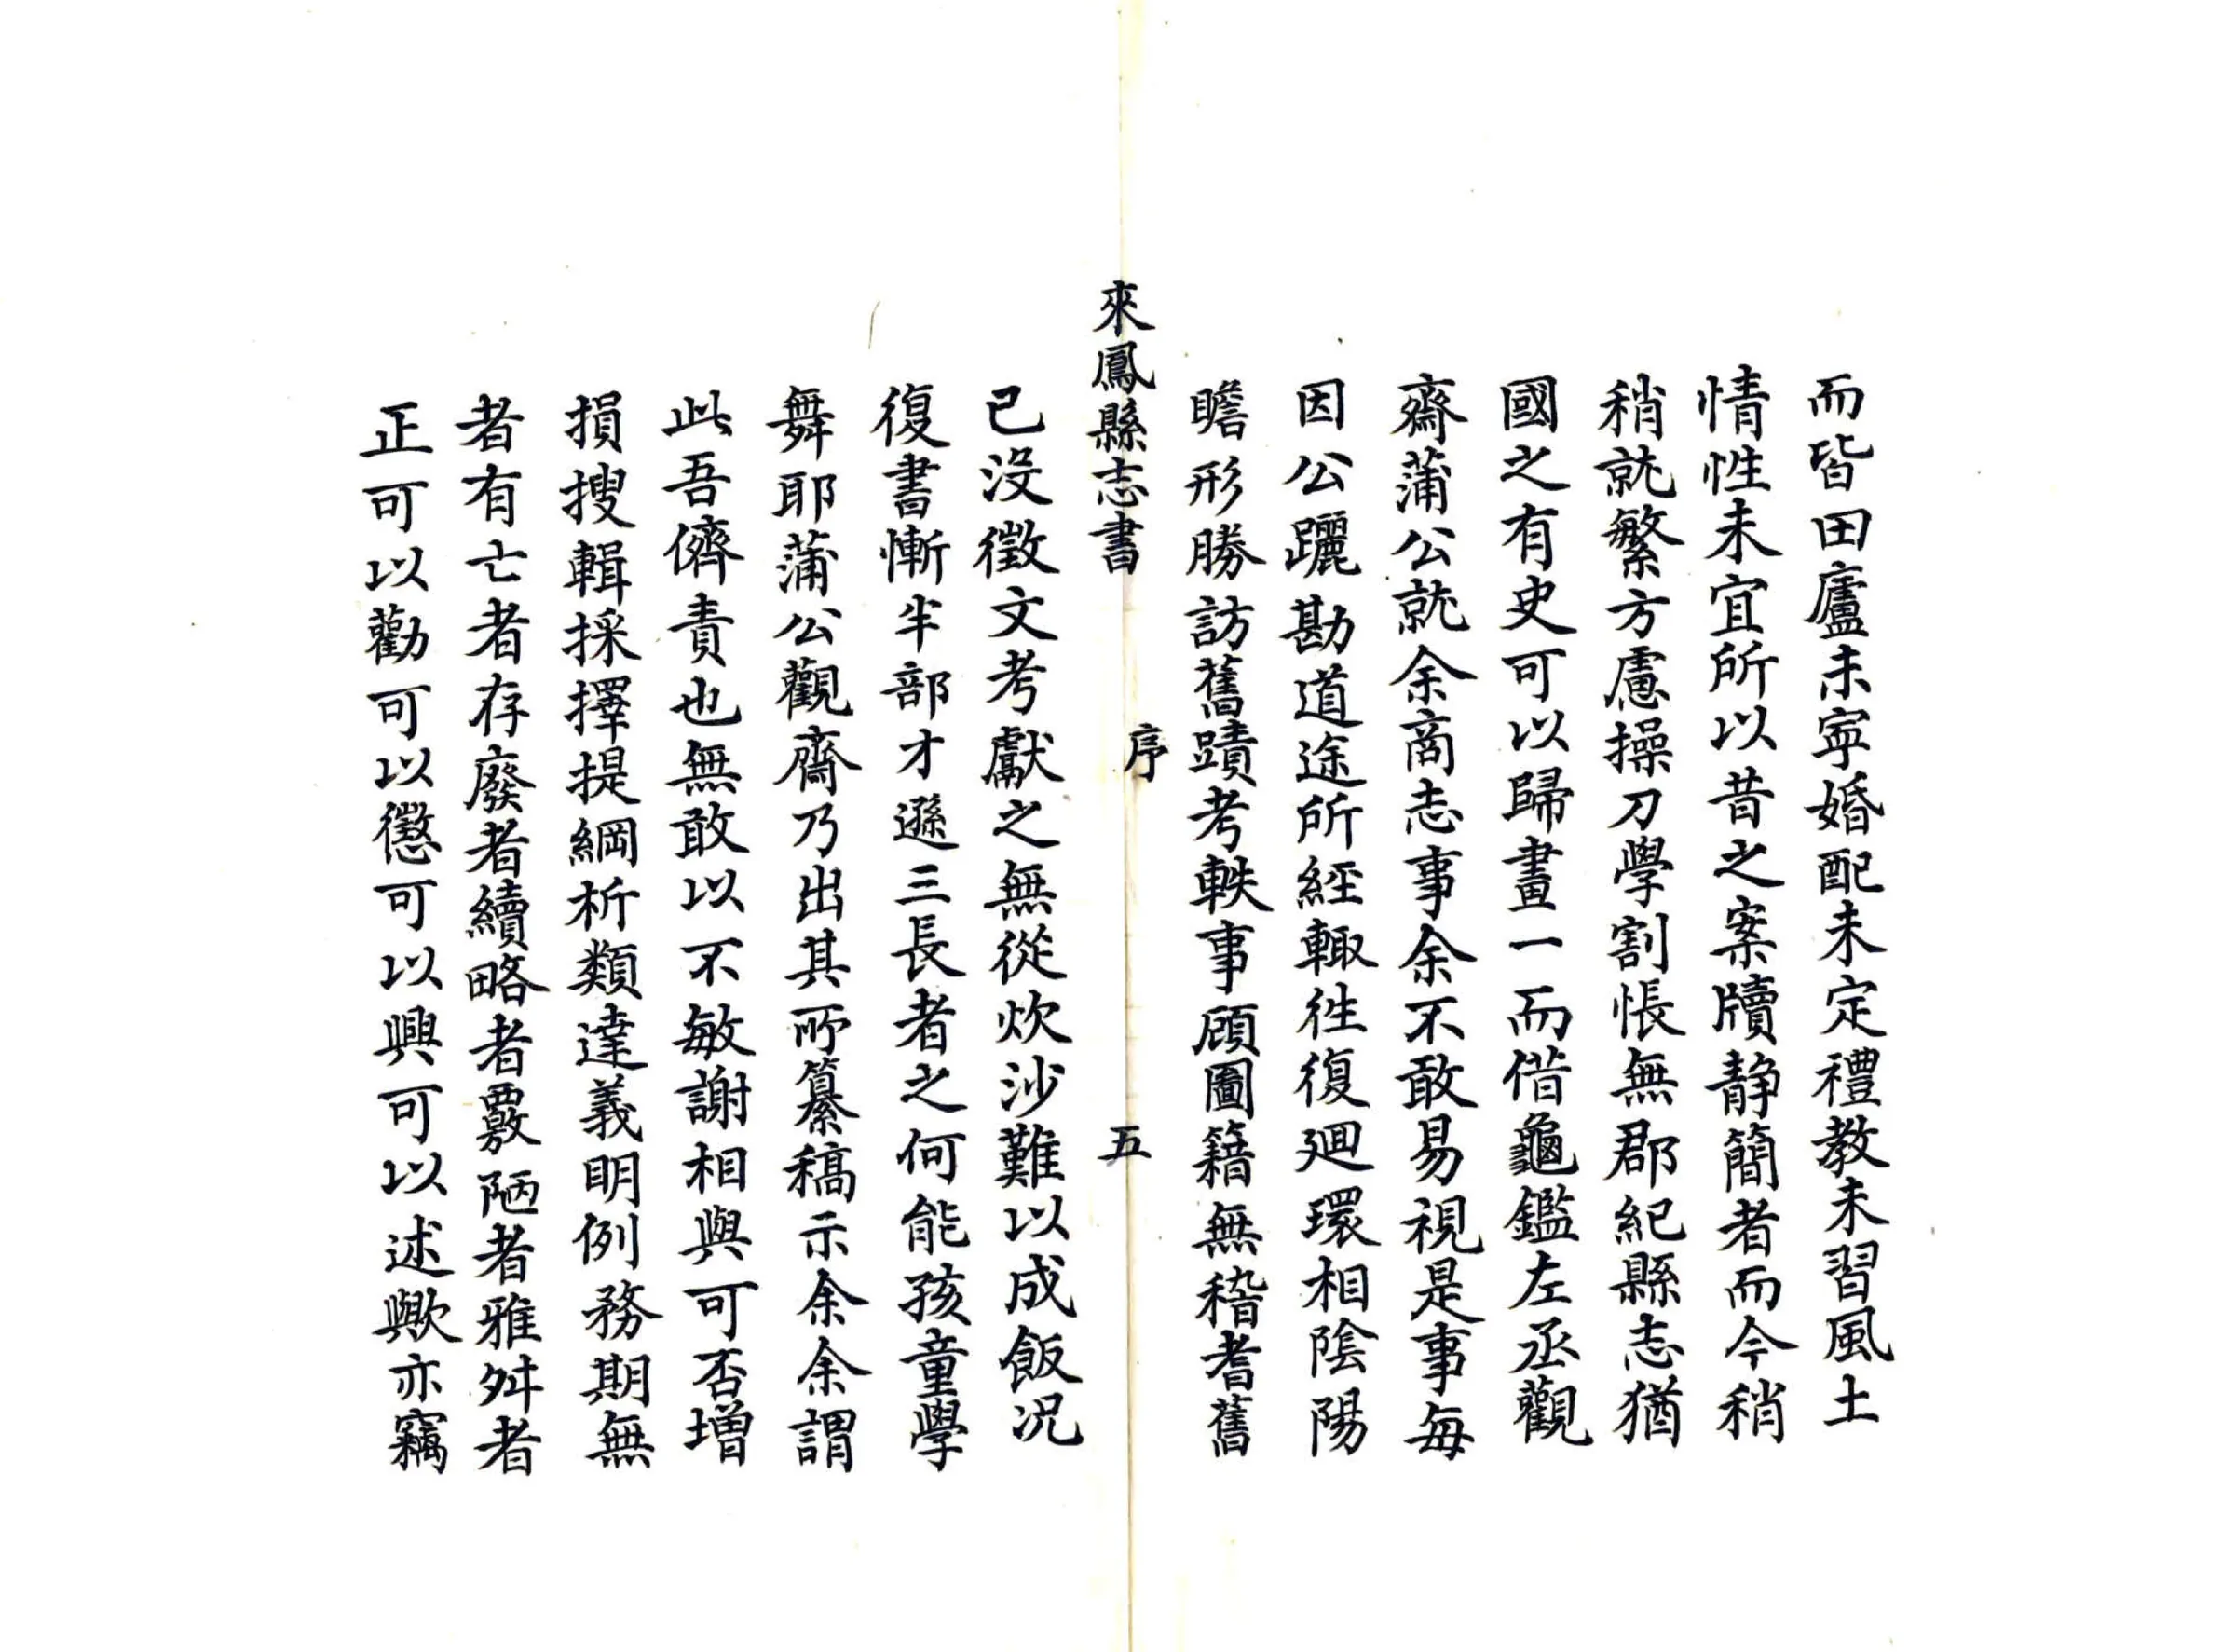 而皆田廬未寧婚配未定禮教未習風土
情性未宜所以昔之案牘静簡者而今稍
稍就繁方慮操刀學割悵無郡紀縣志猶
國之有史可以歸畫一而偕龜鑑左丞觀
齋蒲公就余商志事余不敢易視是事每
因公躧勘道途所經輙徃復廻環相陰陽
瞻形勝訪舊蹟考軼事顧圖籍無稽耆舊
來鳳縣志書
序
五
已没徵文考獻之無從炊沙難以成飯况
復書慚半部才遜三長者之何能孩童學
舞耶蒲公觀齋乃出其所纂稿示余余謂
此吾儕責也無敢以不敏謝相與可否增
損搜輯採擇提綱析類達義明例務期無
者有亡者存廢者續略者覈陋者雅舛者
正可以勸可以懲可以興可以述歟亦竊